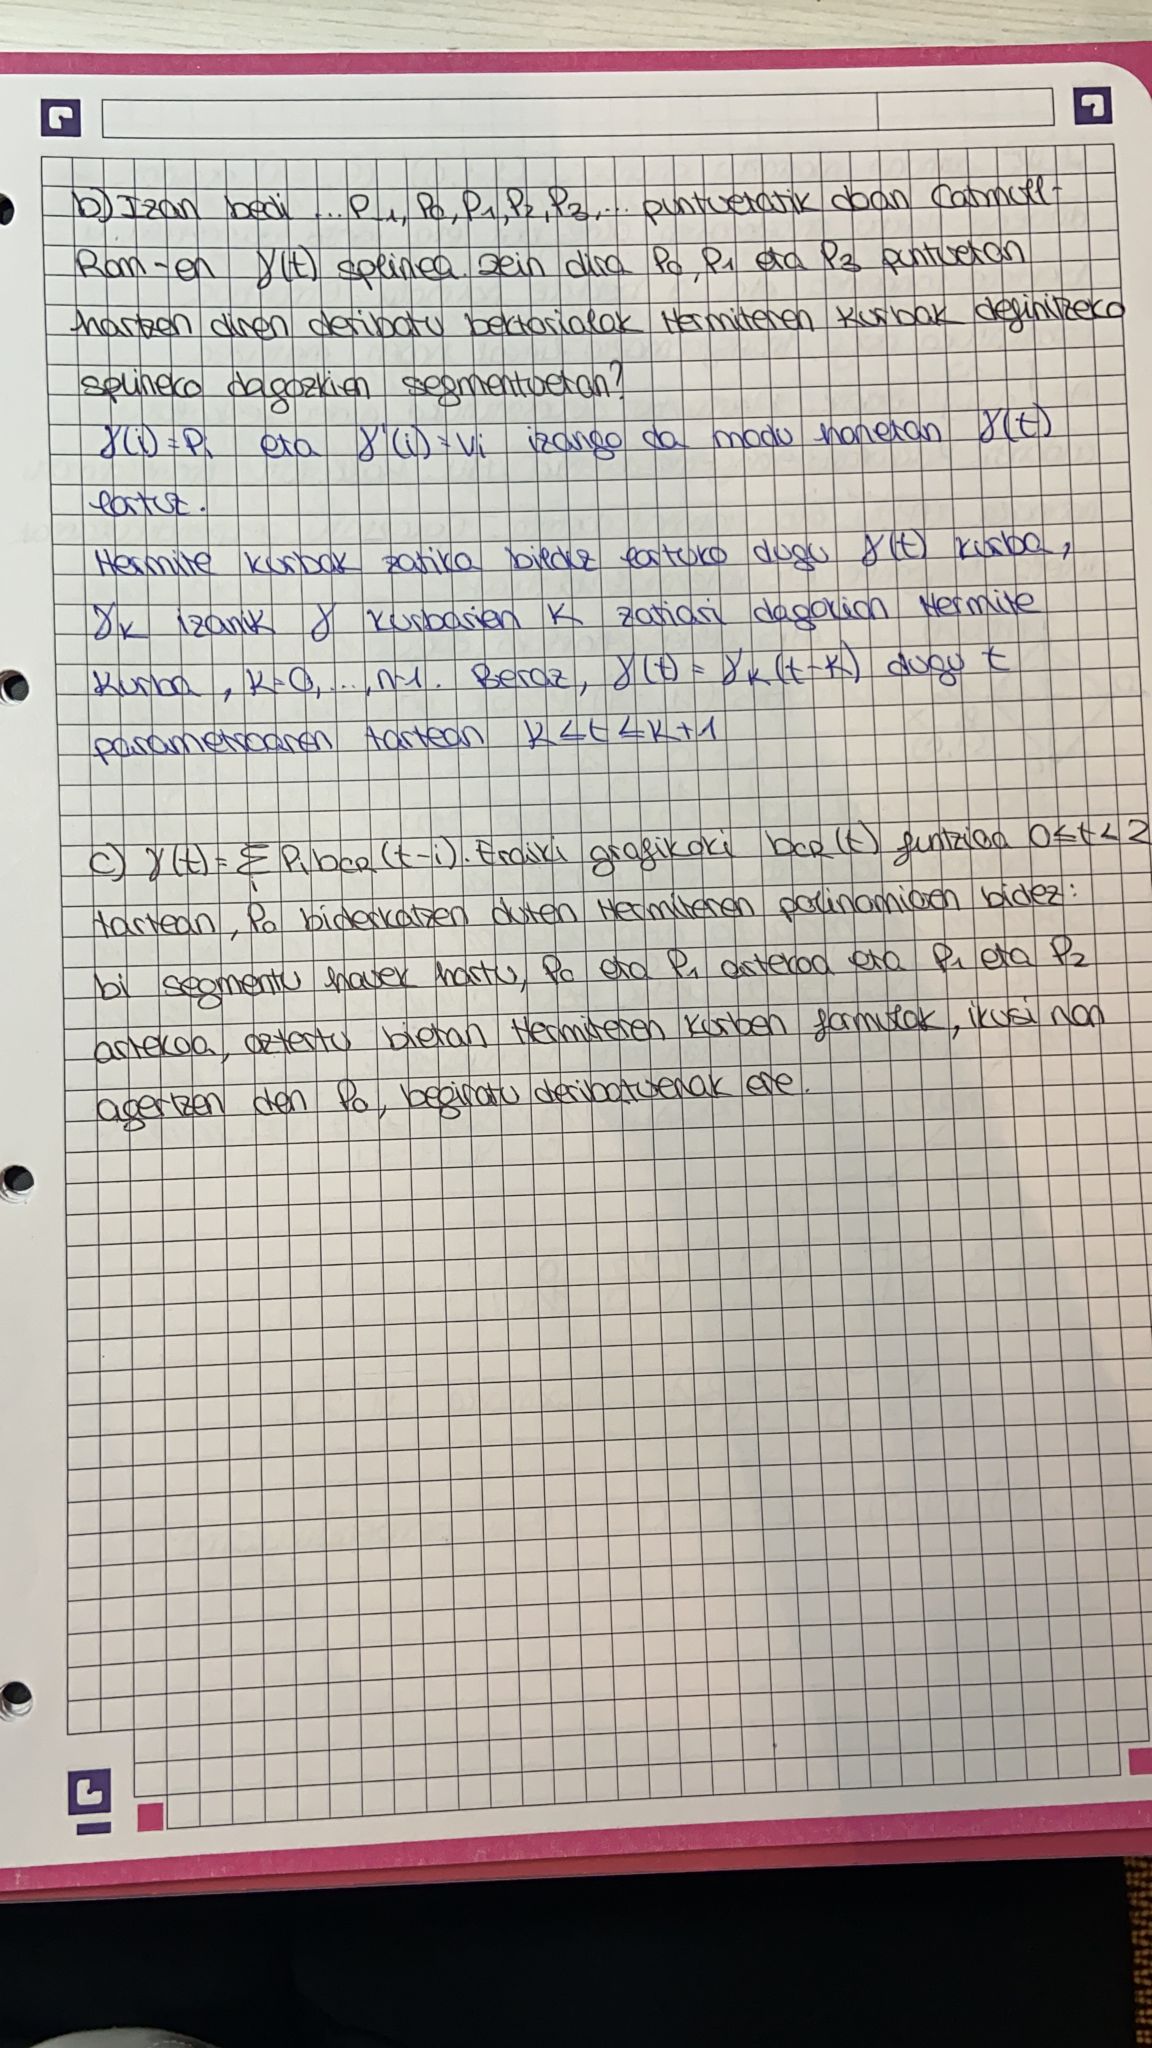 b) Izan bedi ...P-1, P0, P1, P2, P3,... puntuetatik doan Catmull-
Rom-en γ(t) splinea. Zein dira P0, P1 eta P2 puntuetan
hartzen diren deribatu bektorialak Hermiteren kurbak definitzeko
splineko dagozkien segmentuetan?
γ(i)=Pi eta γ'(i)=Vi izango da modu honetan γ(t)
lortuz.
Hermite kurbak zatika bilduz lortuko dugu γ(t) kurba,
γK izanik γ kurbaren K zatiari dagokion Hermite
kurba, K=0,...,n-1. Beraz, γ(t) = γK(t-K) dugu t
parametroaren tartean K≤t≤K+1
c) γ(t)=∑i Pi bCR(t-i). Eraiki grafikoki bCR(t) funtzioa 0≤t<2
tartean, P0 biderkatzen duten Hermiteren polinomioen bidez:
bi segmentu hauek hartu, P0 eta P1 artekoa eta P1 eta P2
artekoa, aztertu bietan Hermiteren kurben formulak, ikusi non
agertzen den P0, begiratu deribatuenak ere.